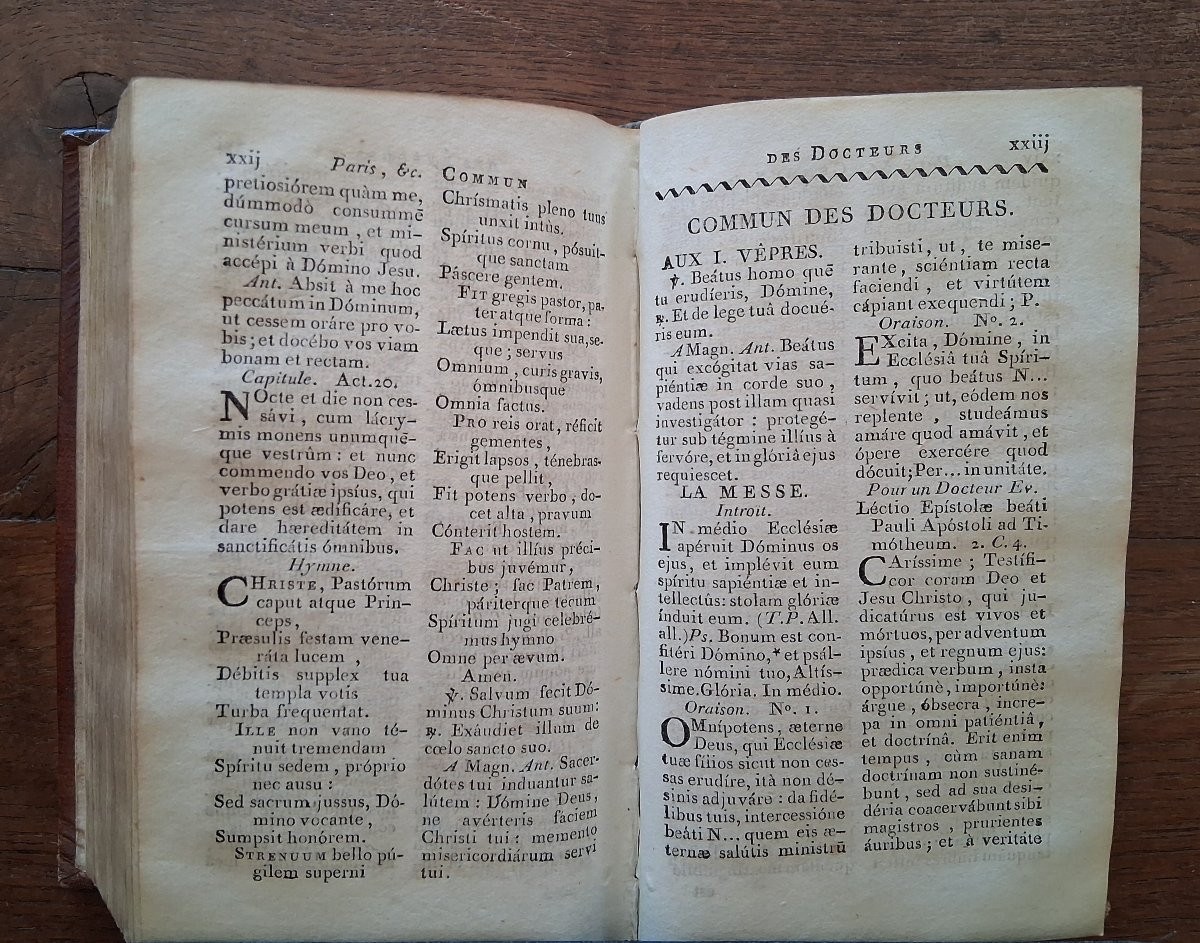 xxij Paris, &c. COMMUN
pretiosiórem quàm me,
dúmmodò consummē
cursum meum, et mi-
nistérium verbi quod
accépi à Dómino Jesu.
Ant. Absit à me hoc
peccátum in Dóminum,
ut cessem oráre pro vo-
bis; et docébo vos viam
bonam et rectam.
Capitule. Act. 20.
NOcte et die non ces-
sávi, cum lácry-
mis monens unumquē-
que vestrûm: et nunc
commendo vos Deo, et
verbo grátiæ ipsíus, qui
potens est ædificáre, et
dare hæreditátem in
sanctificátis ómnibus.
Hymne.
CHRISTE, Pastórum
caput atque Prin-
ceps,
Præsulis festam vene-
ráta lucem,
Débitis supplex tua
templa votis
Turba frequentat.
ILLE non vano té-
nuit tremendam
Spíritu sedem, próprio
nec ausu:
Sed sacrum jussus, Dó-
mino vocante,
Sumpsit honórem.
STRENUUM bello pú-
gilem superni
Chrísmatis pleno tuus
unxit intùs.
Spíritus cornu, pósuit-
que sanctam
Páscere gentem.
FIT gregis pastor, pa-
ter atque forma:
Lætus impendit sua, se-
que; servus
Omnium, curis gravis,
ómnibusque
Omnia factus.
PRO reis orat, réficit
gementes,
Erigit lapsos, ténebras-
que pellit,
Fit potens verbo, do-
cet alta, pravum
Cónterit hostem.
FAC ut illíus préci-
bus juvémur,
Christe; fac Patrem,
páriterque tecum
Spíritum jugi celebré-
mus hymno
Omne per ævum.
Amen.
℣. Salvum fecit Dó-
minus Christum suum:
℟. Exáudiet illum de
cœlo sancto suo.
A Magn. Ant. Sacer-
dótes tui induantur sa-
lútem: Dómine Deus,
ne avérteris faciem
Christi tui: memento
misericordiárum servi
tui.
DES DOCTEURS xxiij
COMMUN DES DOCTEURS.
AUX I. VÊPRES.
℣. Beátus homo quē
tu erudíeris, Dómine,
℟. Et de lege tuâ docué-
ris eum.
A Magn. Ant. Beátus
qui excógitat vias sa-
piéntiæ in corde suo,
vadens post illam quasi
investigátor: protegé-
tur sub tégmine illíus à
fervóre, et in glóriâ ejus
requiescet.
LA MESSE.
Introit.
IN médio Ecclésiæ
apéruit Dóminus os
ejus, et implévit eum
spíritu sapiéntiæ et in-
tellectûs: stolam glóriæ
índuit eum. (T.P. All.
all.) Ps. Bonum est con-
fitéri Dómino,* et psál-
lere nómini tuo, Altís-
sime. Glória. In médio.
Oraison. No. 1.
OMnípotens, æterne
Deus, qui Ecclésiæ
tuæ fílios sicut non ces-
sas erudíre, ità non dé-
sinis adjuváre: da fidé-
libus tuis, intercessióne
beáti N... quem eis æ-
ternæ salútis ministrū
tribuisti, ut, te mise-
rante, sciéntiam recta
faciendi, et virtútem
cápiant exequendi; P.
Oraison. No. 2.
EXcita, Dómine, in
Ecclésiâ tuâ Spíri-
tum, quo beátus N...
servívit; ut, eódem nos
replente, studeámus
amáre quod amávit, et
ópere exercére quod
dócuit; Per... in unitáte.
Pour un Docteur Ev.
Léctio Epístolæ beáti
Pauli Apóstoli ad Ti-
mótheum. 2. C. 4.
CAríssime; Testífi-
cor coram Deo et
Jesu Christo, qui ju-
dicatúrus est vivos et
mórtuos, per adventum
ipsíus, et regnum ejus:
prædica verbum, insta
opportúnè, importúnè:
árgue, óbsecra, incre-
pa in omni patiéntiâ,
et doctrínâ. Erit enim
tempus, cùm sanam
doctrínam non sustiné-
bunt, sed ad sua desi-
déria coacervábunt sibi
magistros, prurientes
áuribus; et à veritáte